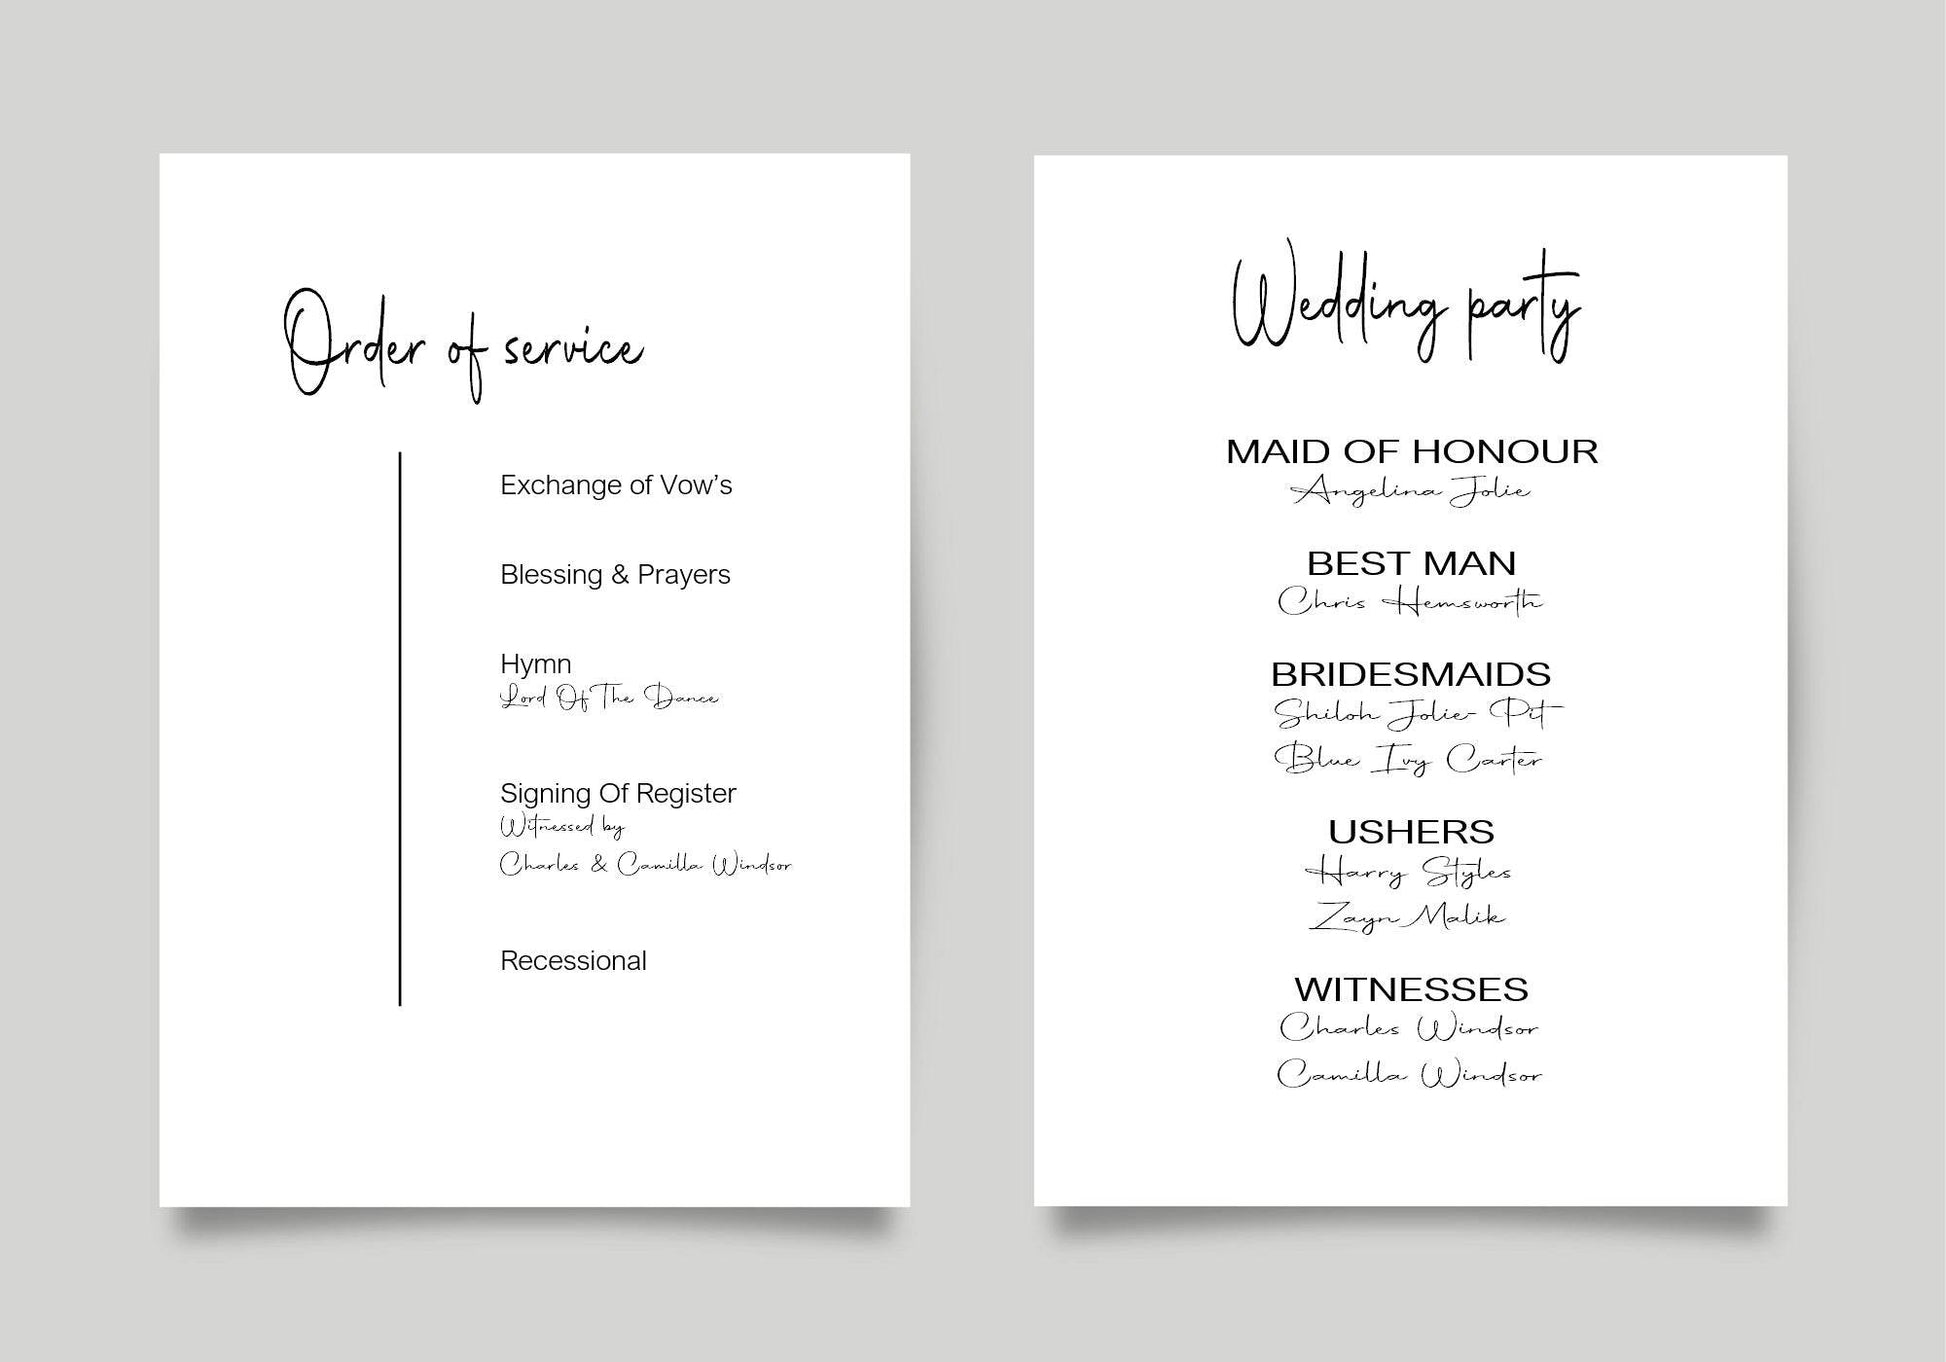 Order of service
Exchange of Vow’s
Blessing & Prayers
Hymn
Lord Of The Dance
Signing Of Register
Witnessed by
Charles & Camilla Windsor
Recessional
Wedding party
MAID OF HONOUR
Angelina Jolie
BEST MAN
Chris Hemsworth
BRIDESMAIDS
Shiloh Jolie- Pit
Blue Ivy Carter
USHERS
Harry Styles
Zayn Malik
WITNESSES
Charles Windsor
Camilla Windsor